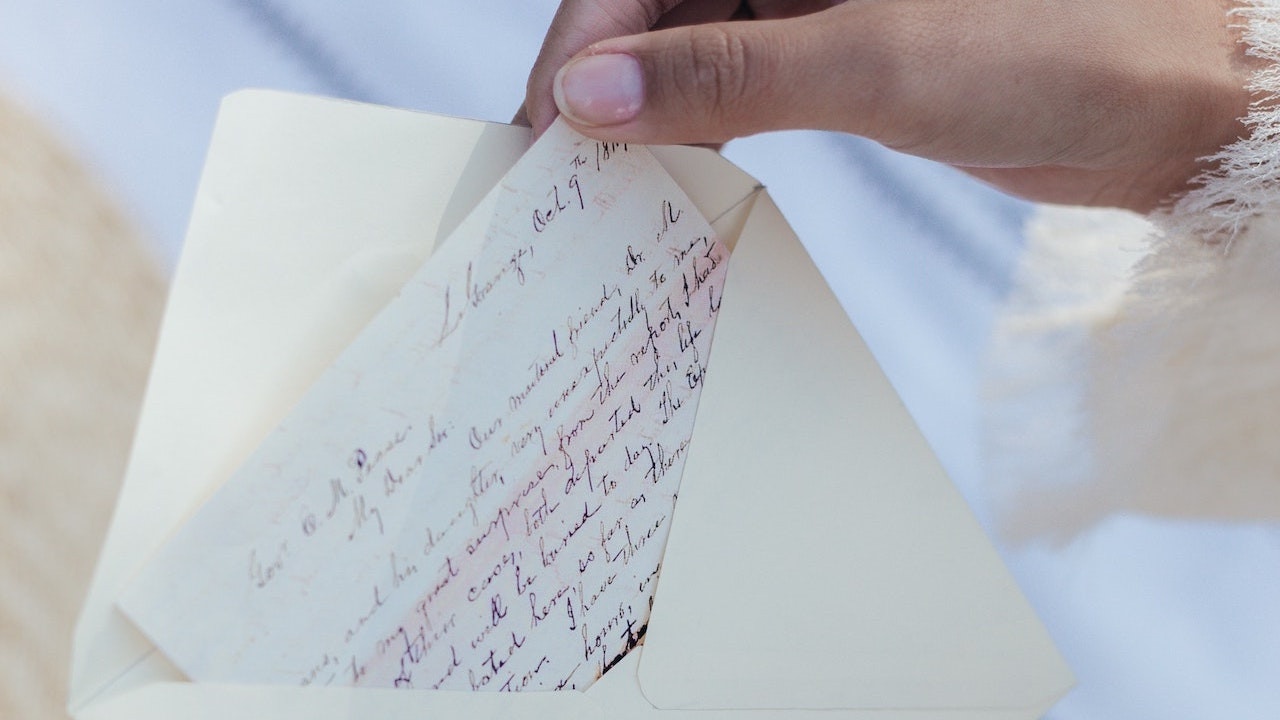 La Grange, Oct. 9th 18
Gov. E. M. Pease.
My Dear Sir:
Our mutual friend, Dr. M.
and his daughter, very unexpectedly to me,
to my great surprise, from the report, I had
of their cases, both departed this life
and will be buried to day. The Ep
bated here, so far, as there
I have three
home, in